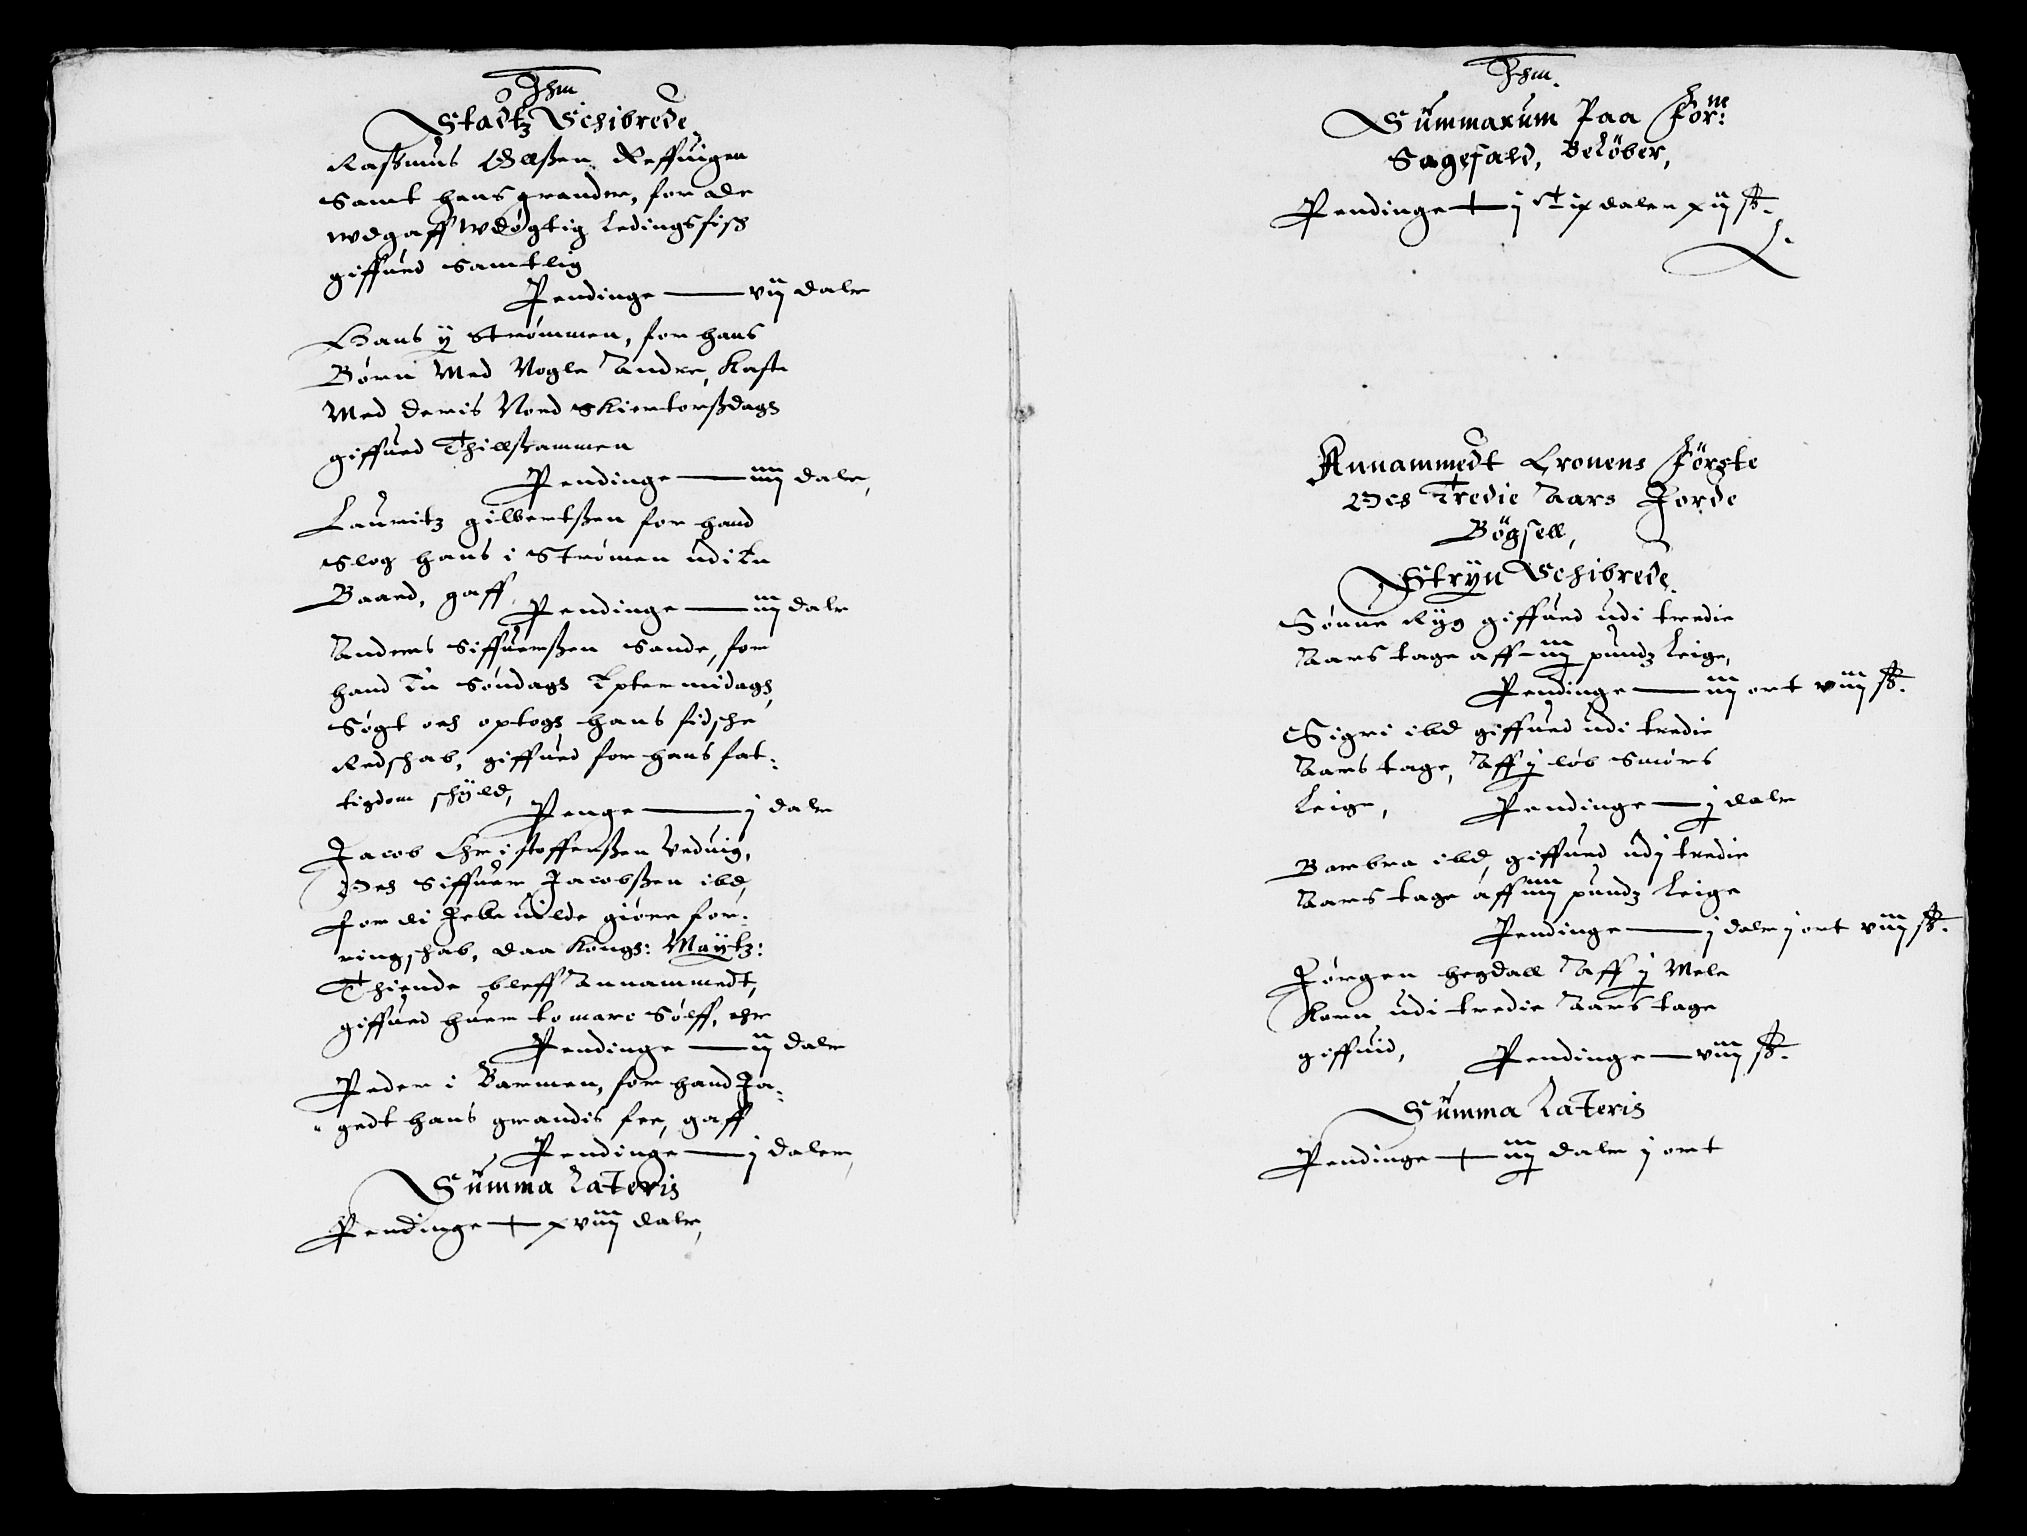 Jhm
Stadtz Schibrede
Rasmus Ollßen Reffuigen
Samt hans grander, for de
wdgaff wdøgtig Ledingsfisch
giffued Samtlig
Pendinge — vij daler
Hans y Strømmen, for hans
Børn Med Nogle Andre, Kaste
Med deris Nord Skiertorßdags
giffued Thillßammen
Pendinge — iiij daler,
Lauritz gilbertßen for hand
Slog hans i Strømen udi En
Baard, gaff,
Pendinge — iij daler
Anders Siffuerßen Sande, for
hand En Søndags Epter midags
Søgt och optogs hans fidsche
Redschab, giffued for hans fat-
tigdom schÿld,
Penge — j daler
Jacob Christofferßen Vedvig,
Och Siffuer Jacobßen ibd,
for di Icke vilde giøre for-
ringschab, daa Kongs: Maÿtz:
Thiende bleff Annammedt,
giffued huer to marc Sølff, ehr
Pendinge — ij daler
Peder i Barmen, for hand Ja-
gedt hans grandis fee, gaff
Pendinge — j daler,
Summa Lateris
Pendinge — xviij daler,
Jhm.
Summarum Paa For:m
Sagefald, Beløber,
Pendinge — j Ct ix daler xij ß.
Annammedt Cronens Første
Och Tredie Aars Jorde
Bøgsell,
Strÿn Schibrede
Sønne Ryg giffued udi tredie
Aars tage aff — iij pundz Leige,
Pendinge — iij ort viij ß.
Sigri ibd giffued udi tredie
Aars tage, Aff j løb Smørs
Leige,
Pendinge — j daler
Barbra ibd, giffued udj tredie
Aars tage aff iiij pundz Leige
Pendinge — j daler j ort viij ß.
Jørgen hegdall Aff j Mele
Korn udi tredie Aars tage
giffuid,
Pendinge — viij ß.
Summa Lateris
Pendinge — iij daler j ort